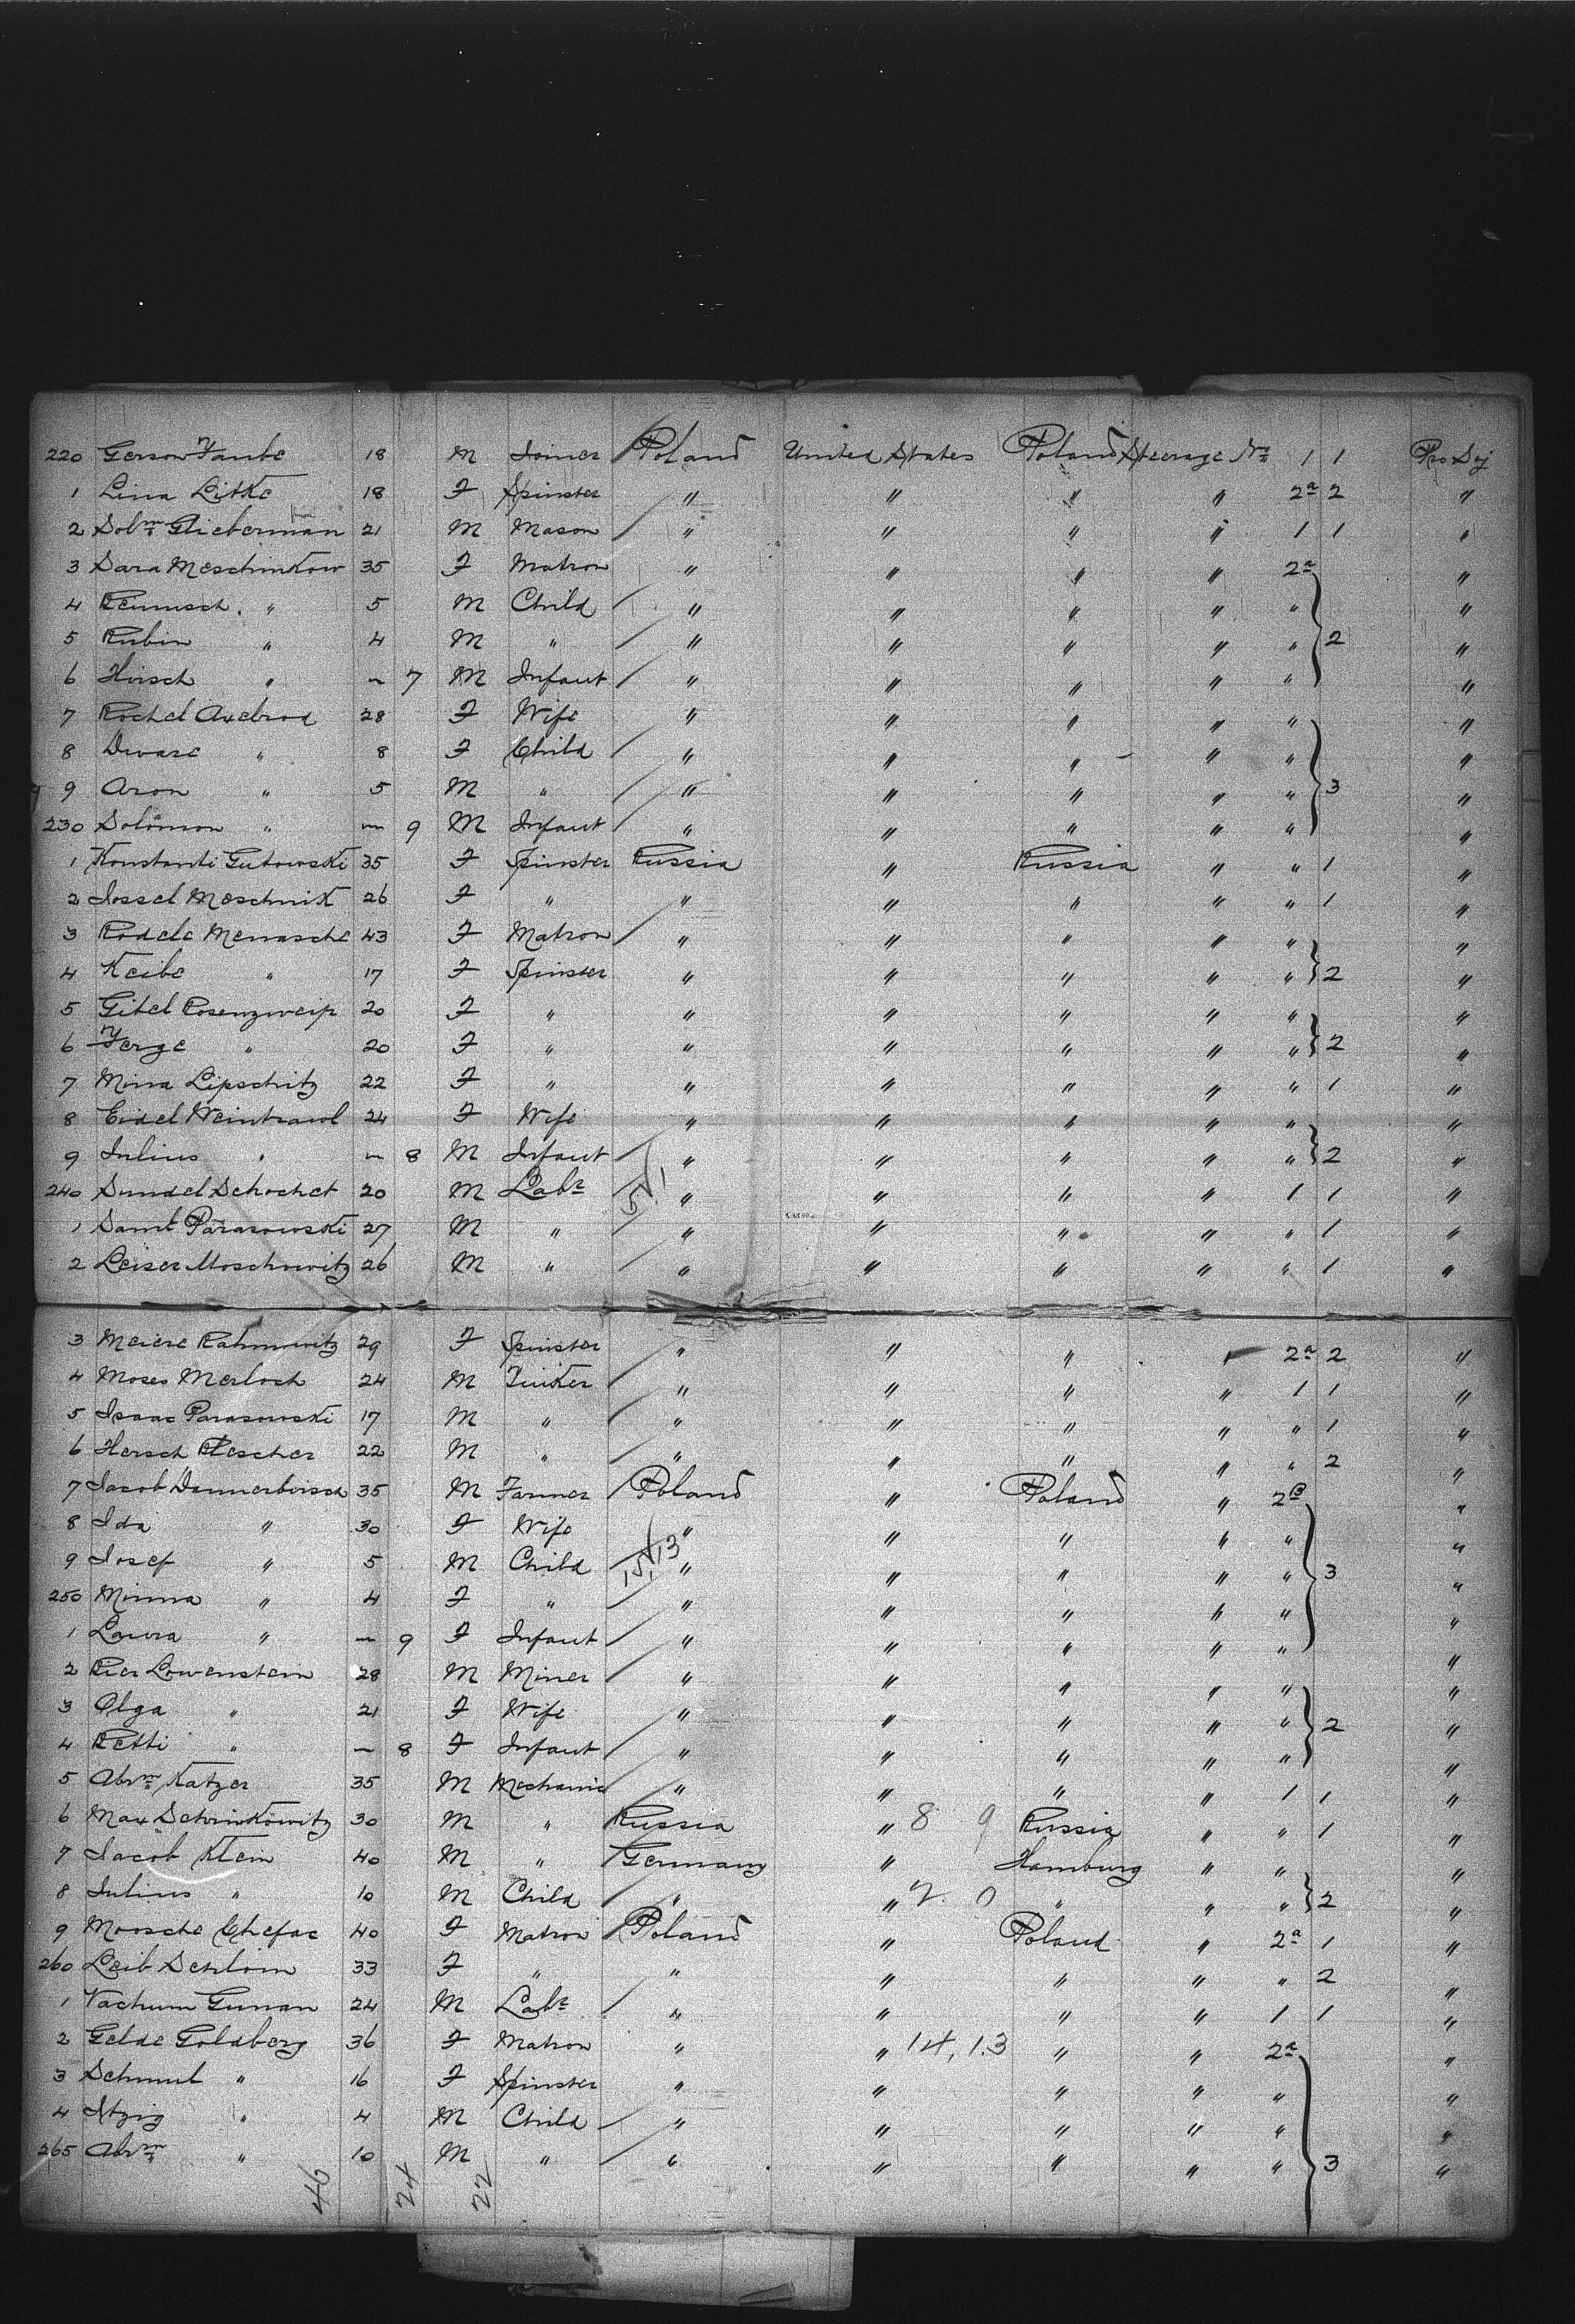 220 Gerson Taube 18 M Joiner Poland United States Poland Steerage No 1 1 Pro Soj
1 Lina Litke 18 F Spinster " " " " 2a 2 "
2 Solm Glieberman 21 M Mason " " " " 1 1 "
3 Sara Meschinkow 35 F Matron " " " " 2a "
4 " 5 M Child " " " " " "
5 Rubin " 4 M " " " " " " 2 "
6 Hirsch " 7 M Infant " " " " " "
7 Rochel Axelrod 28 F Wife " " " " " "
8 Dware " 8 F Child " " " " " "
9 Aron " 5 M " " " " " " 3 "
230 Solomon " 9 M Infant " " " " " "
1 Konstanti Gutowski 35 F Spinster Russia " Russia " " 1 "
2 Jossel Meschnik 26 F " " " " " " 1 "
3 Rodele Menasche 43 F Matron " " " " " "
4 Keibe " 17 F Spinster " " " " " 2 "
5 Gitel Rosenzweip 20 F " " " " " " "
6 Ferge " 20 F " " " " " " 2 "
7 Mina Lipschitz 22 F " " " " " " 1 "
8 Eidel Weintrawl 24 F Wife " " " " " "
9 Julius " 8 M Infant " " " " " 2 "
240 Sundel Schochet 20 M Labr 5 1 " " " " 1 1 "
1 Saml Parasowski 27 M " " " " " " 1 "
2 Leiser Moschowitz 26 M " " " " " " 1 "
3 Meiere Rahmowitz 29 F Spinster " " " " 2a 2 "
4 Moses Merloch 24 M Tinker " " " " 1 1 "
5 Isaac Parasowski 17 M " " " " " " 1 "
6 Hersch Plescher 22 M " " " " " " 2 "
7 Jacob Dannerbirsch 35 M Farmer Poland " Poland " 2B "
8 Ida " 30 F Wife " " " " " "
9 Josef " 5 M Child 15, 13 " " " " " 3 "
250 Minna " 4 F " " " " " " "
1 Laura " 9 F Infant " " " " " "
2 Lowenstein 28 M Miner " " " " " "
3 Olga " 21 F Wife " " " " " 2 "
4 Retti " 8 F Infant " " " " " "
5 Abrm Katzer 35 M Mechanic " " " " 1 1 "
6 Max Schinkowitz 30 M " Russia " 8 9 Russia " " 1 "
7 Jacob Klein 40 M " Germany " Hamburg " " "
8 Julius " 10 M Child " " 2. 0 " " " 2 "
9 Moosche Chefac 40 F Matron Poland " Poland " 2a 1 "
260 Leib Schloim 33 F " " " " " " 2 "
1 Nachum Gunan 24 M Labr " " " " 1 1 "
2 Gelde Goldberg 36 F Matron " " 14, 13 " " 2a "
3 Schmul " 16 F Spinster " " " " " "
4 Itzig " 4 M Child " " " " " "
265 Abrm " 10 M " " " " " " 3 "
46 24 22